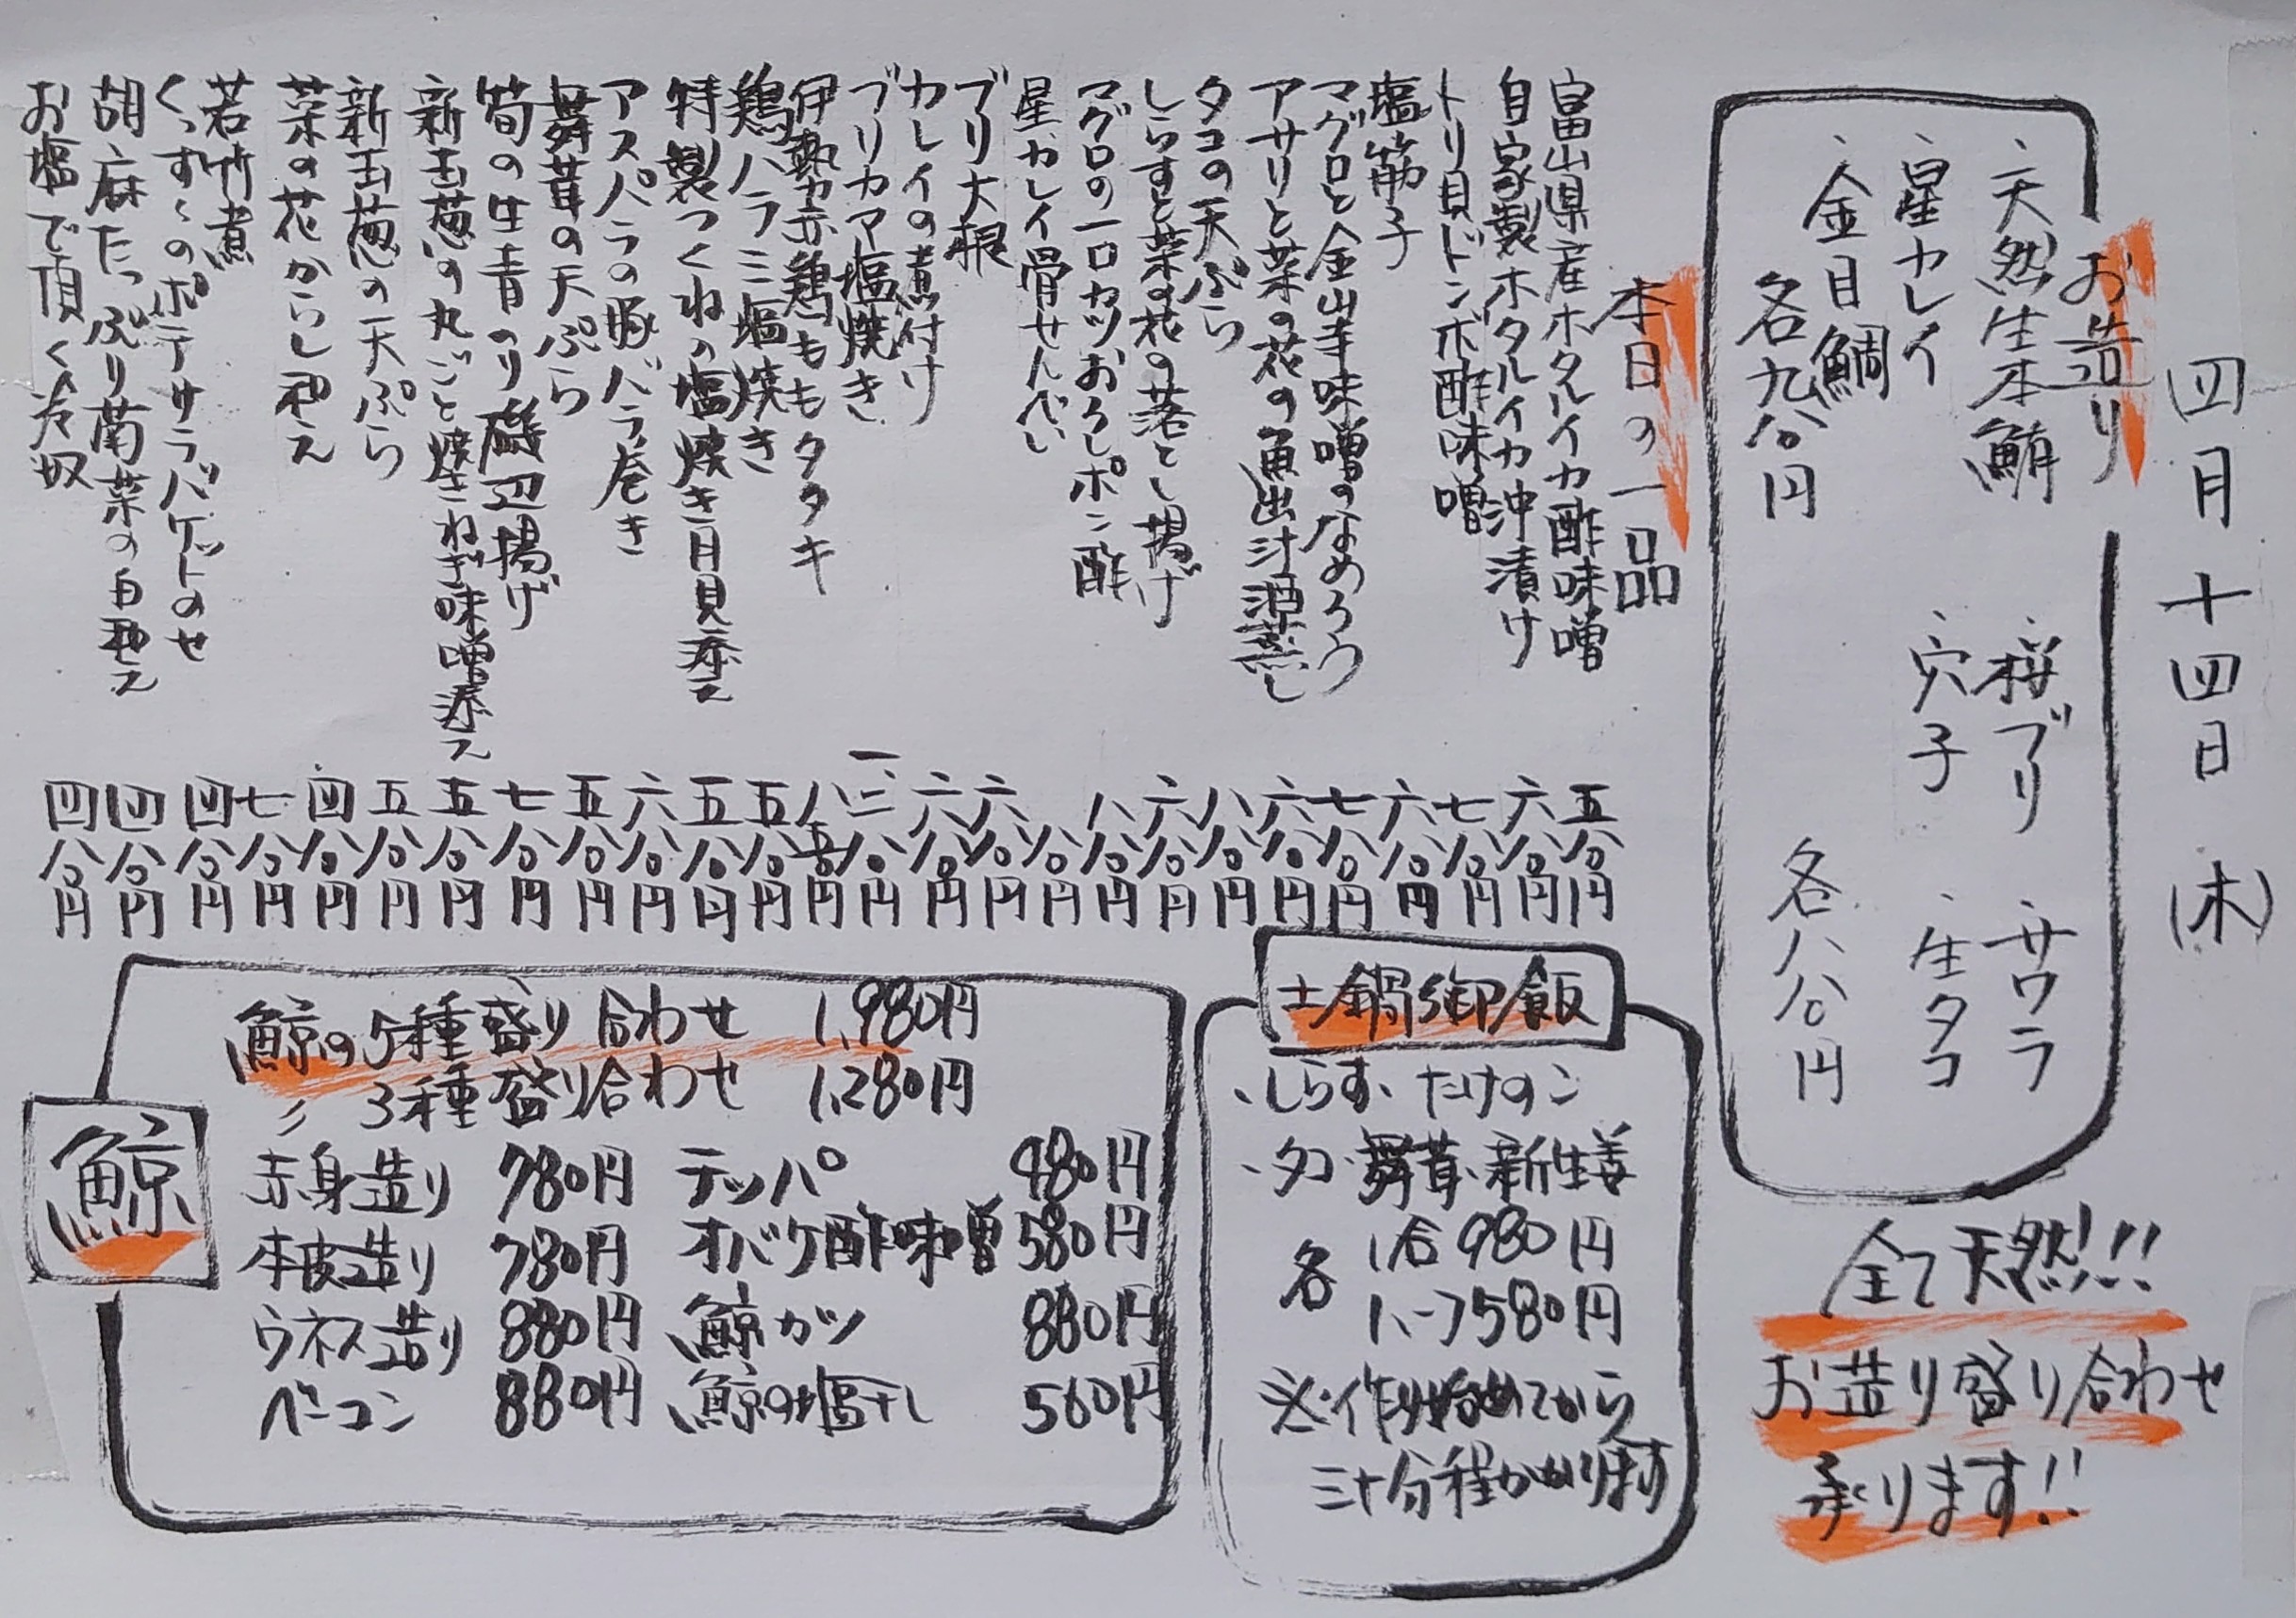 四月十四日(木)
お造り
・天然生本鮪 ・桜ブリ ・サワラ
・星カレイ ・穴子 ・生タコ
・金目鯛
各九八〇円 各八八〇円
全て天然!!
お造り盛り合わせ
承ります!!
本日の一品
富山県産ホタルイカ酢味噌 五八〇円
自家製ホタルイカ沖漬け 六八〇円
トリ貝ドンボ酢味噌 七八〇円
塩筋子 六八〇円
マグロと金山寺味噌のなめろう 七八〇円
アサリと菜の花の魚出汁酒蒸し 六八〇円
タコの天ぷら 八八〇円
しらすと菜の花の落とし揚げ 六八〇円
マグロの一口カツおろしポン酢 八八〇円
星カレイ骨せんべい 八〇円
ブリ大根 六八〇円
カレイの煮付け 六八〇円
ブリカマ塩焼き 一、二八〇円
伊勢赤鶏ももタタキ 八五〇円
鶏ハラミ塩焼き 五八〇円
特製つくねの塩焼き月見添え 五八〇円
アスパラの豚バラ巻き 六八〇円
舞茸の天ぷら 五八〇円
筍の生青のり磯辺揚げ 七八〇円
新玉葱の丸ごと焼きねぎ味噌添え 五八〇円
新玉葱の天ぷら 五八〇円
菜の花からし和え 四八〇円
若竹煮 七八〇円
のポテサラバゲットのせ 四八〇円
胡麻たっぷり菊菜の白和え 四八〇円
お塩で頂く冷奴 四八〇円
土鍋御飯
・しらす・たけのこ
・タコ・舞茸・新生姜
各 1合 980円
1ハーフ580円
※作り始めてから
三十分程かかります
鯨
鯨の5種盛り合わせ 1,980円
〃 3種盛り合わせ 1,280円
赤身造り 780円 テッパ 480円
本皮造り 780円 オバケ酢味噌 580円
ウネス造り 880円 鯨カツ 880円
ベーコン 880円 鯨の塩干し 560円